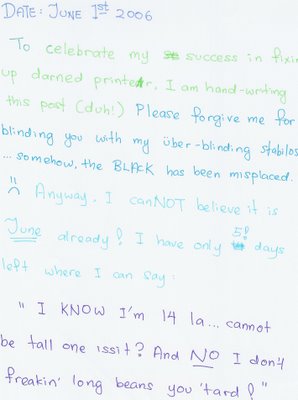 DATE: JUNE 1st 2006
To celebrate my success in fixin
up darned printer, I am hand-writing
this post (duh!) Please forgive me for
blinding you with my über-blinding stabilos
... somehow, the BLACK has been misplaced.
Anyway, I canNOT believe it is
June already! I have only 5! days
left where I can say:
" I KNOW I'm 14 la... cannot
be tall one issit? And NO I don't
freakin' long beans you 'tard! "